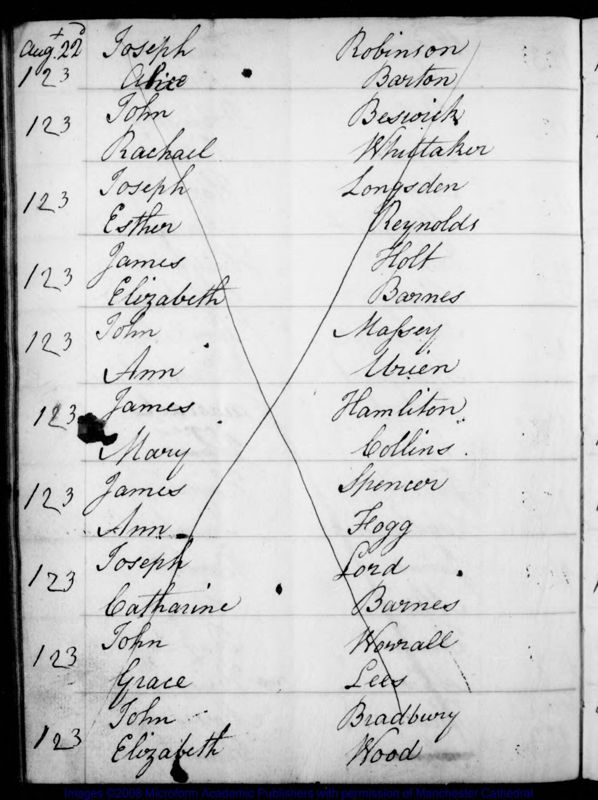 Augt. 22d Joseph Robinson
123 Alice Barton
John Beswick
123
Rachael Whittaker
Joseph Longsden
123
Esther Reynolds
James Holt
123
Elizabeth Barnes
John Massey
123
Ann Urien
James Hamliton
123
Mary Collins
James Spencer
123
Ann Fogg
Joseph Lord
123
Catharine Barnes
John Worrall
123
Grace Lees
John Bradbury
123
Elizabeth Wood
Images ©2008 Microform Academic Publishers with permission of Manchester Cathedral